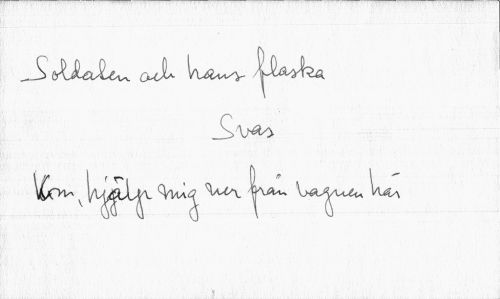 Soldaten och hans flaska
Svas
Kom, hjälp mig ner från vagnen här